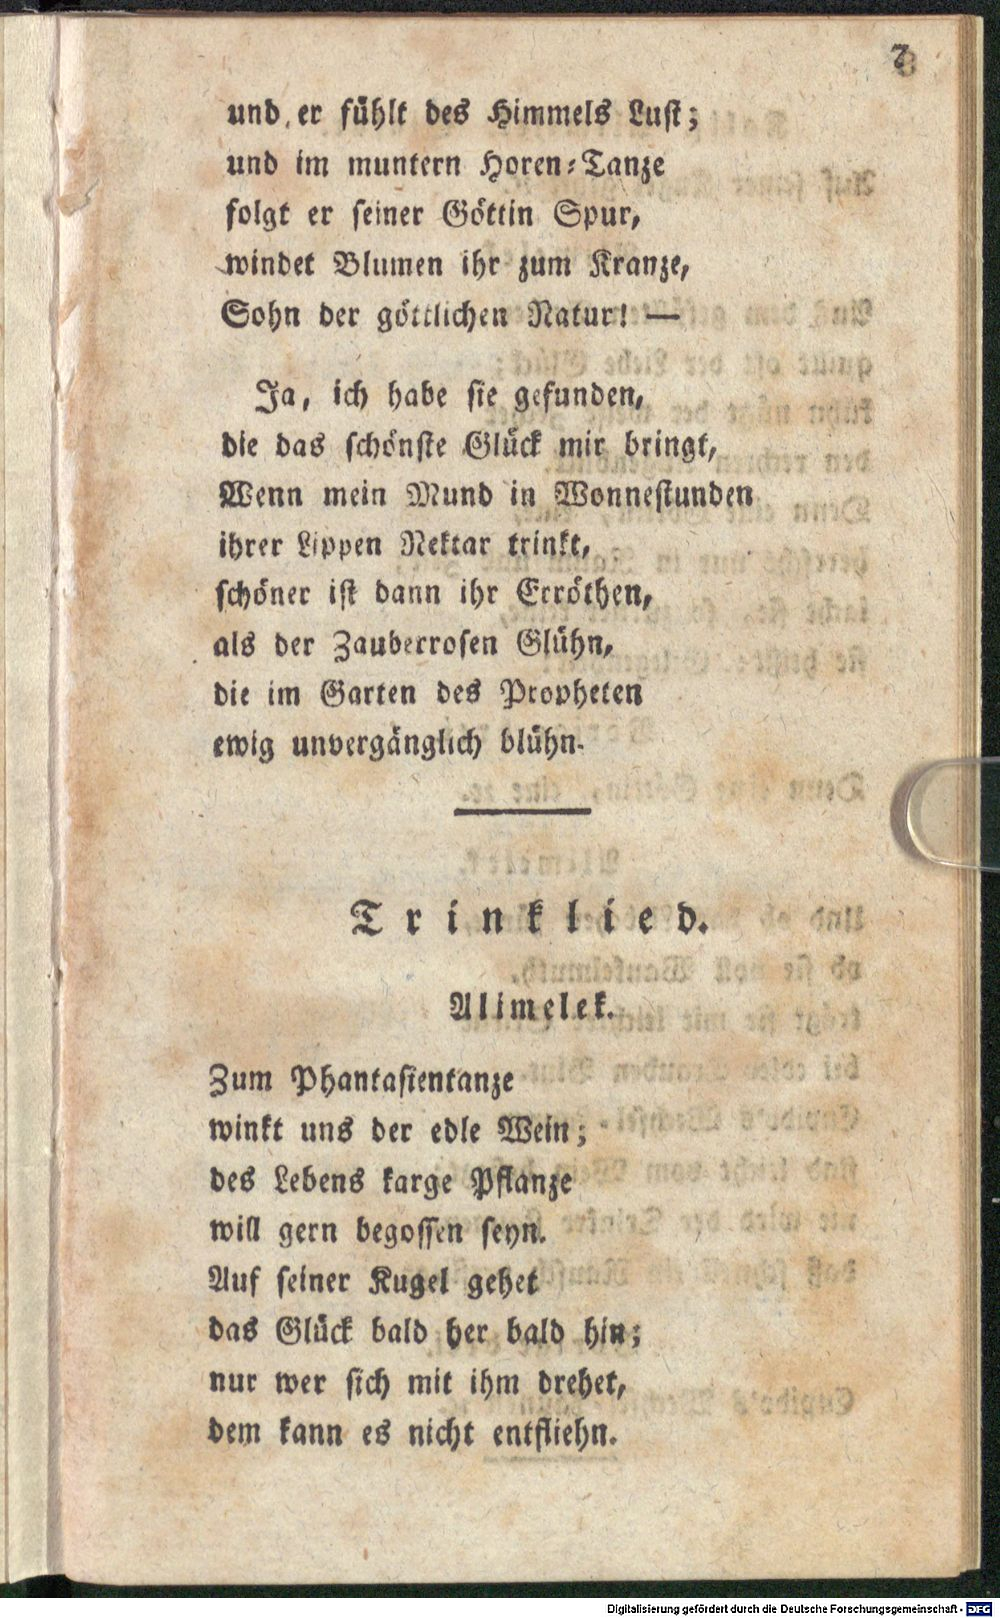 7
und er fühlt des Himmels Lust;
und im muntern Horen-Tanze
folgt er seiner Göttin Spur,
windet Blumen ihr zum Kranze,
Sohn der göttlichen Natur! —
Ja, ich habe sie gefunden,
die das schönste Glück mir bringt,
Wenn mein Mund in Wonnestunden
ihrer Lippen Nektar trinkt,
schöner ist dann ihr Erröthen,
als der Zauberrosen Glühn,
die im Garten des Propheten
ewig unvergänglich blühn.
Trinklied.
Alimelek.
Zum Phantasientanze
winkt uns der edle Wein;
des Lebens karge Pflanze
will gern begossen seyn.
Auf seiner Kugel gehet
das Glück bald her bald hin;
nur wer sich mit ihm drehet,
dem kann es nicht entfliehn.
Digitalisierung gefördert durch die Deutsche Forschungsgemeinschaft - DFG